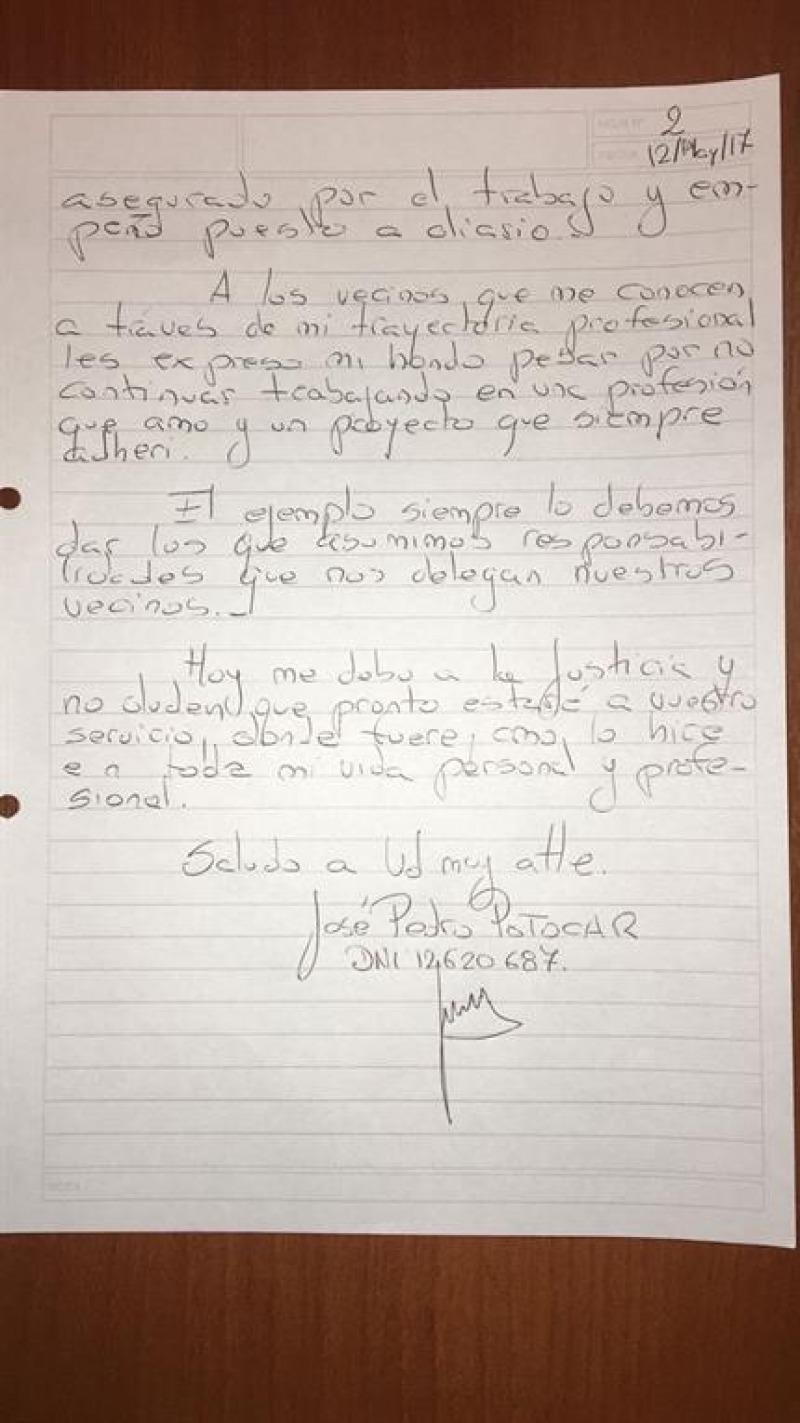 2
12/May/17
asegurado por el trabajo y em-
peño puesto a diario.
A los vecinos, que me conocen
a tráves de mi trayectoria profesional
les expreso mi hondo pesar por no
continuar trabajando en una profesión
que amo y un proyecto que siempre
adheri.
El ejemplo siempre lo debemos
dar los que asumimos responsabi-
lidades que nos delegan nuestros
vecinos._
Hoy me debo a la Justicia y
no duden, que pronto estaré a vuestro
servicio, donde fuere, como lo hice
en toda mi vida personal y profe-
sional.
Saludo a Ud muy atte.
José Pedro POTOCAR
DNI 12.620 687.